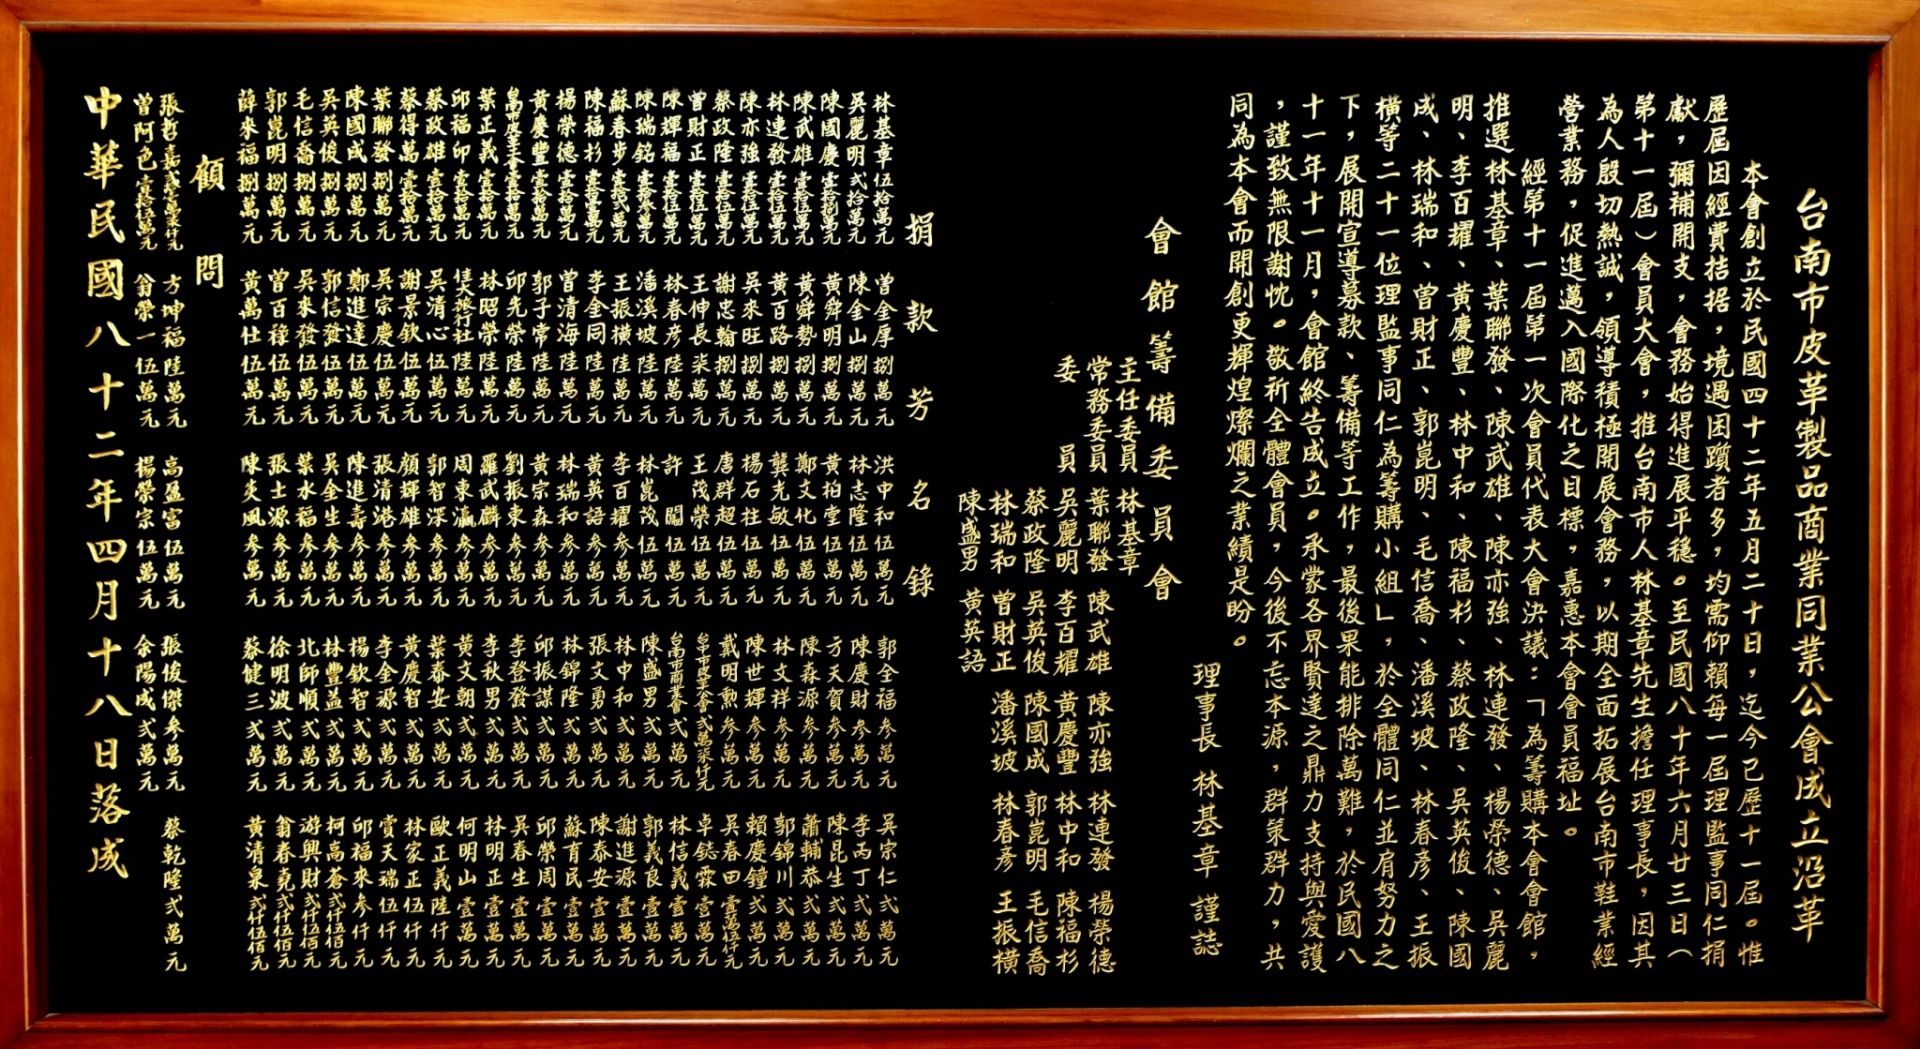 台南市皮革製品商業同業公會成立沿革
本會創立於民國四十二年五月二十日，迄今已歷十一屆。惟
歷屆因經費拮据，境遇困躓者多，均需仰賴每一屆理監事同仁捐
獻，彌補開支，會務始得進展平穩。至民國八十年六月廿三日（
第十一屆）會員大會，推台南市人林基章先生擔任理事長，因其
為人殷切熱誠，領導積極開展會務，以期全面拓展台南市鞋業經
營業務，促進邁入國際化之目標，嘉惠本會會員福址。
經第十一屆第一次會員代表大會決議：「為籌購本會會館，
推選林基章、葉聯發、陳武雄、陳亦強、林連發、楊榮德、吳麗
明、李百耀、黃慶豐、林中和、陳福杉、蔡政隆、吳英俊、陳國
成、林瑞和、曾財正、郭崑明、毛信喬、潘溪坡、林春彥、王振
橫等二十一位理監事同仁為籌購小組」，於全體同仁並肩努力之
下，展開宣導募款、籌備等工作，最後果能排除萬難，於民國八
十一年十一月，會館終告成立。承蒙各界賢達之鼎力支持與愛護
，謹致無限謝忱。敬祈全體會員，今後不忘本源，群策群力，共
同為本會而開創更輝煌燦爛之業績是盼。
理事長 林基章 謹誌
會館籌備委員會
主任委員 林基章
常務委員 葉聯發 陳武雄 陳亦強 林連發 楊榮德
委員 吳麗明 李百耀 黃慶豐 林中和 陳福杉
蔡政隆 吳英俊 陳國成 郭崑明 毛信喬
林瑞和 曾財正 潘溪坡 林春彥 王振橫
陳盛男 黃英語
捐款芳名錄
林基章伍拾萬元 曾金厚捌萬元 洪中和伍萬元 郭全福參萬元 吳宗仁弍萬元
吳麗明弍拾萬元 陳金山捌萬元 林志隆伍萬元 陳慶財參萬元 李丙丁弍萬元
陳國慶壹拾捌萬元 黃舜明捌萬元 黃柏堂伍萬元 方天賀參萬元 陳昆生弍萬元
陳武雄壹拾伍萬元 黃舜勢捌萬元 鄭文化伍萬元 陳森源參萬元 蕭輔恭弍萬元
林連發壹拾伍萬元 黃百路捌萬元 龔光敏伍萬元 林文祥參萬元 郭錦川弍萬元
陳亦強壹拾伍萬元 吳來旺捌萬元 楊石柱伍萬元 陳世輝參萬元 賴慶鐘弍萬元
蔡政隆壹拾伍萬元 謝忠翰捌萬元 唐群超伍萬元 戴明勳參萬元 吳春田壹萬伍仟元
曾財正壹拾伍萬元 王仲長柒萬元 王茂榮伍萬元 台中市皮革公會弍萬柒仟元 卓鋕霖壹萬元
陳輝福壹拾伍萬元 林春彥陸萬元 許闖伍萬元 台南市商業會弍萬元 林信義壹萬元
陳瑞銘壹拾參萬元 潘溪坡陸萬元 林崑茂伍萬元 陳盛男弍萬元 郭義良壹萬元
蘇春步壹拾弍萬元 王振橫陸萬元 李百耀參萬元 林中和弍萬元 謝進源壹萬元
陳福杉壹拾壹萬元 李金同陸萬元 黃英語參萬元 張文勇弍萬元 陳泰安壹萬元
楊榮德壹拾萬元 曾清海陸萬元 林瑞和參萬元 林錦隆弍萬元 蘇育民壹萬元
黃慶豐壹拾萬元 郭子常陸萬元 黃宗森參萬元 邱振謀弍萬元 邱榮周壹萬元
邱先榮陸萬元 劉振東參萬元 李登發弍萬元 吳春生壹萬元
葉正義壹拾萬元 林昭榮陸萬元 羅武麟參萬元 李秋男弍萬元 林明正壹萬元
邱福印壹拾萬元 周東瀛參萬元 黃文朝弍萬元 何明山壹萬元
蔡政雄壹拾萬元 吳清心伍萬元 郭智深參萬元 葉泰安弍萬元 歐正義陸仟元
蔡得萬壹拾萬元 謝景欽伍萬元 顏輝雄參萬元 黃慶智弍萬元 林家正伍仟元
葉聯發捌萬元 吳宗慶伍萬元 張清港參萬元 李金源弍萬元 賞天瑞伍仟元
陳國成捌萬元 鄭進達伍萬元 陳進壽參萬元 楊欽智弍萬元 邱福來參仟元
吳英俊捌萬元 郭信發伍萬元 吳金生參萬元 林豐益弍萬元 柯高蒼弍仟伍佰元
毛信喬捌萬元 吳來發伍萬元 葉水福參萬元 北師順弍萬元 游興財弍仟伍佰元
郭崑明捌萬元 曾百祿伍萬元 張士源參萬元 徐明波弍萬元 翁春堯弍仟伍佰元
薛來福捌萬元 黃萬仕伍萬元 陳炎風參萬元 蔡健三弍萬元 黃清泉弍仟伍佰元
顧問
張哲嘉 方坤福陸萬元 高盈富伍萬元 張俊傑參萬元 蔡乾隆弍萬元
曾阿色壹拾伍萬元 翁榮一伍萬元 楊榮宗伍萬元 余陽成弍萬元
中華民國八十二年四月十八日落成